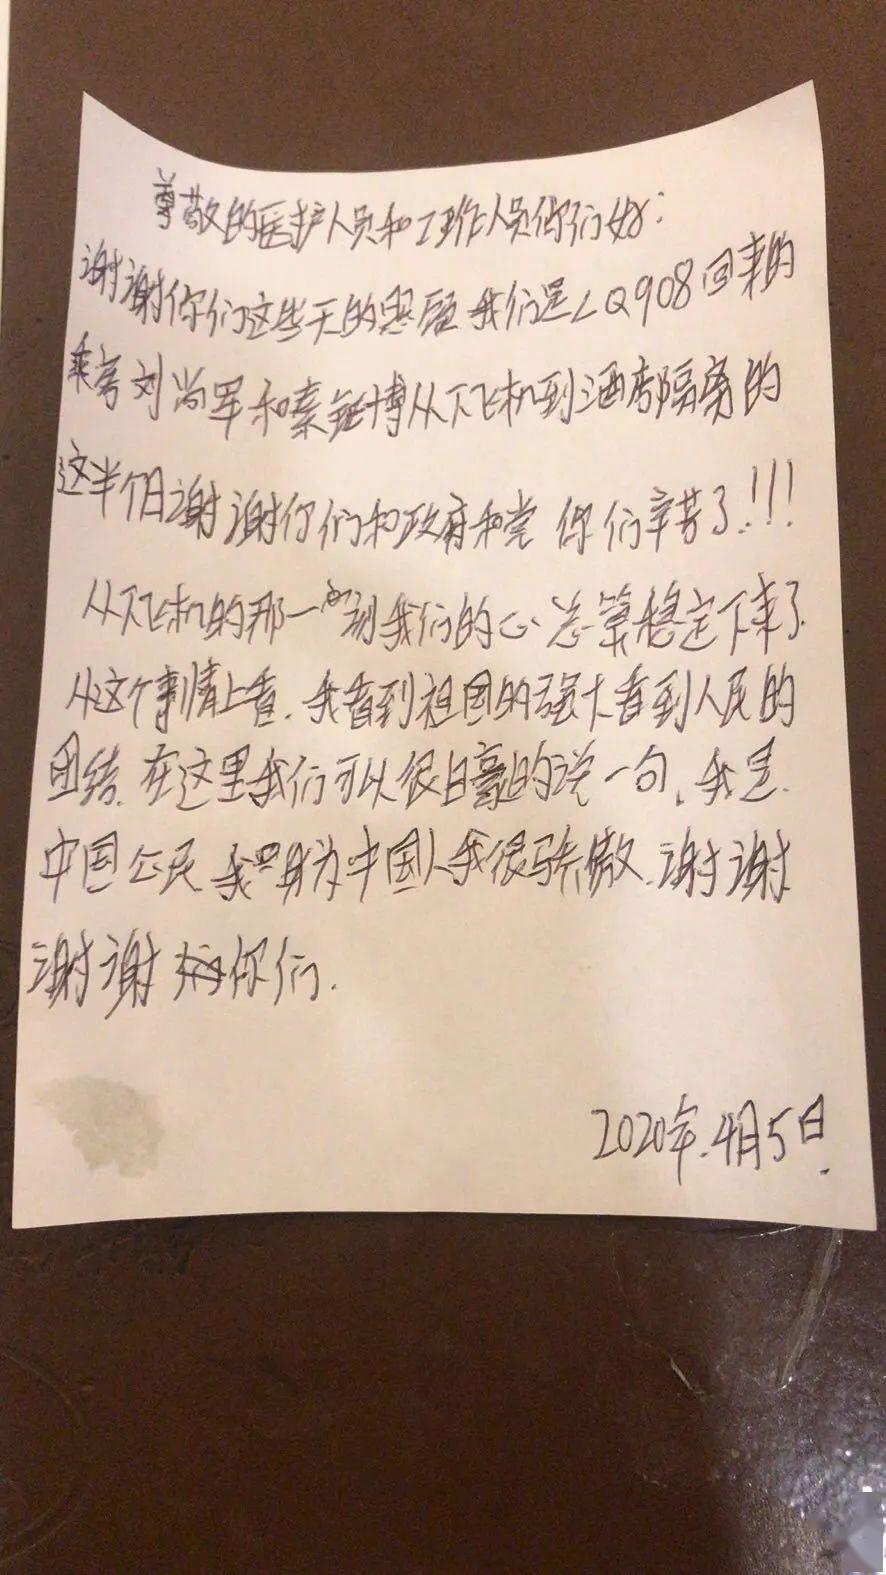 尊敬的医护人员和工作人员你们好:
谢谢你们这些天的照顾 我们是LQ908回来的
乘客刘尚军和秦博从下飞机到酒店隔离的
这半个月谢谢你们和政府和党 你们辛苦了!!!
从下飞机的那一刻我们的心总算稳定下来了.
从这个事情上看.我看到祖国的强大看到人民的
团结.在这里我们可以很自豪的说一句.我是.
中国公民 我身为中国人我很骄傲.谢谢
谢谢你们.
2020年.4月5日.